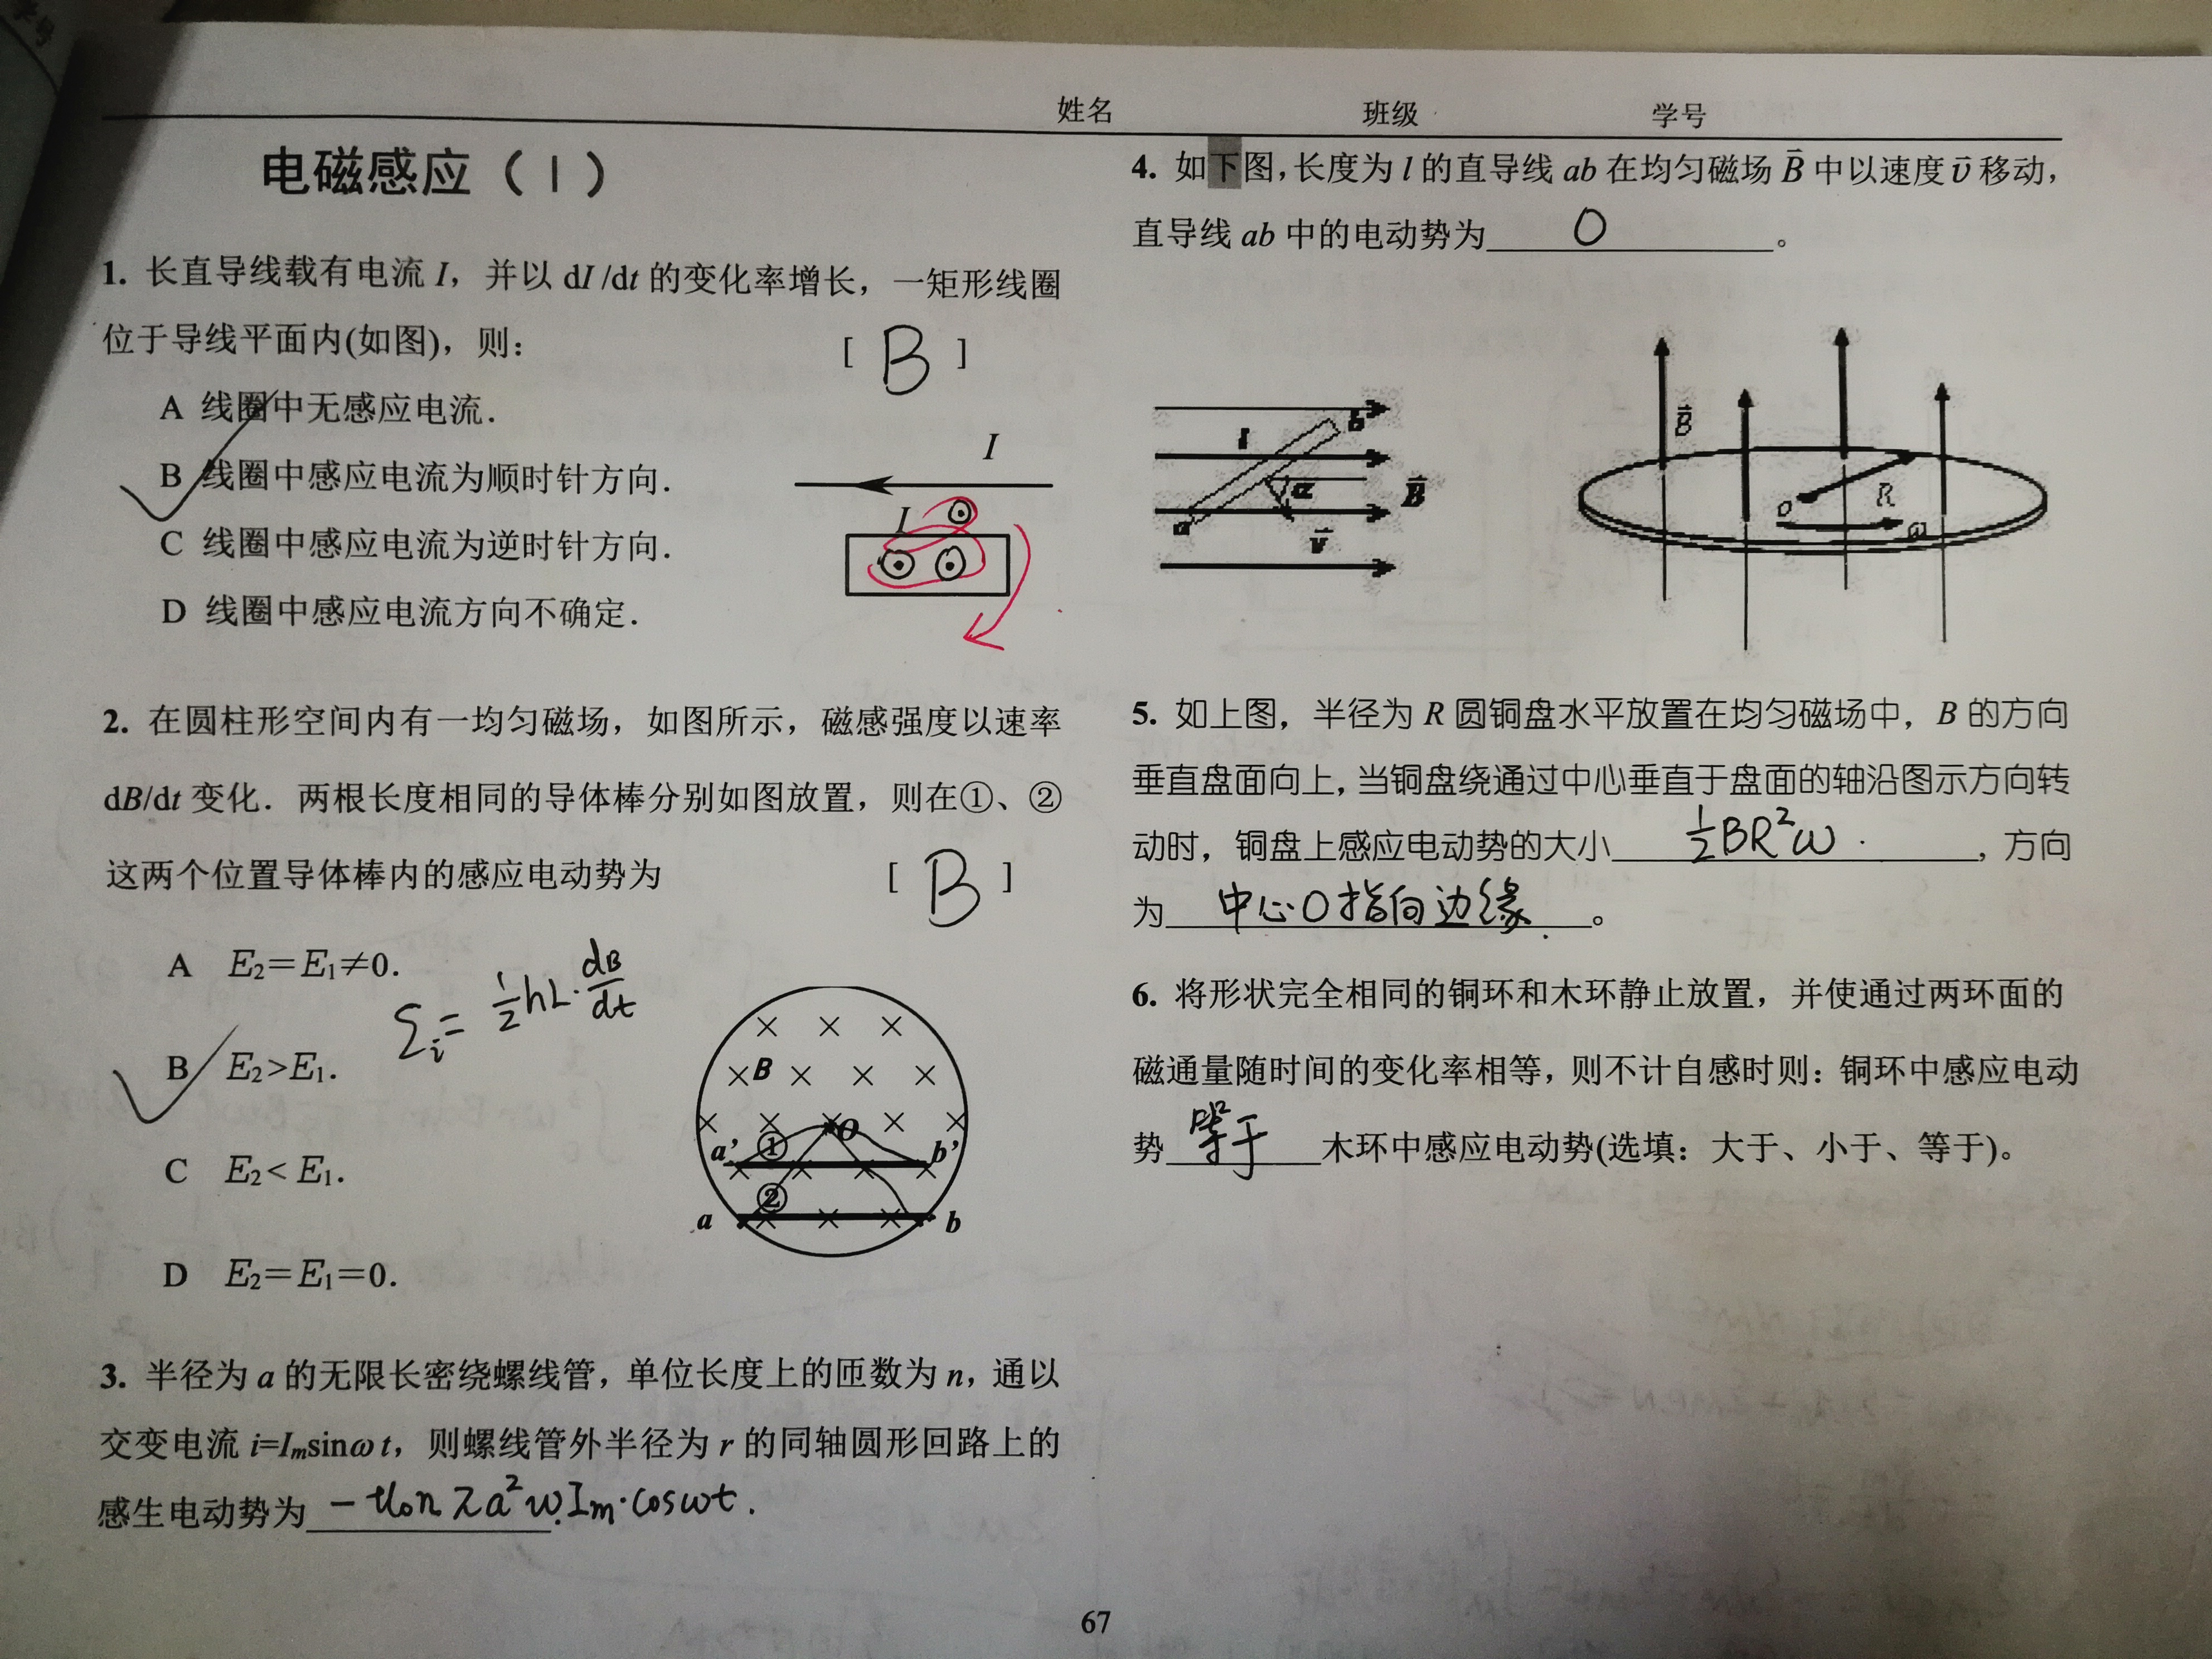 学号
姓名 班级 学号
电磁感应（I）
1. 长直导线载有电流 I，并以 dI/dt 的变化率增长，一矩形线圈
位于导线平面内(如图)，则： [ B ]
A 线圈中无感应电流.
B 线圈中感应电流为顺时针方向.
C 线圈中感应电流为逆时针方向.
D 线圈中感应电流方向不确定.
I
I
2. 在圆柱形空间内有一均匀磁场，如图所示，磁感强度以速率
dB/dt 变化．两根长度相同的导体棒分别如图放置，则在①、②
这两个位置导体棒内的感应电动势为 [ B ]
A E₂＝E₁≠0.
Σi = ½hL·dB/dt
B E₂>E₁.
C E₂< E₁.
D E₂＝E₁＝0.
B
O
a' ① b'
②
a b
3. 半径为 a 的无限长密绕螺线管，单位长度上的匝数为 n，通以
交变电流 i=Iₘsinωt，则螺线管外半径为 r 的同轴圆形回路上的
感生电动势为 －μ₀nπa²ωIm·cosωt．
4. 如下图，长度为 l 的直导线 ab 在均匀磁场 B⃗ 中以速度 v⃗ 移动，
直导线 ab 中的电动势为 0 。
b
l
α
B⃗
a
v⃗
B⃗
O R
ω
5. 如上图，半径为 R 圆铜盘水平放置在均匀磁场中，B 的方向
垂直盘面向上，当铜盘绕通过中心垂直于盘面的轴沿图示方向转
动时，铜盘上感应电动势的大小 ½BR²ω ，方向
为 中心O指向边缘 。
6. 将形状完全相同的铜环和木环静止放置，并使通过两环面的
磁通量随时间的变化率相等，则不计自感时则：铜环中感应电动
势 等于 木环中感应电动势(选填：大于、小于、等于)。
67